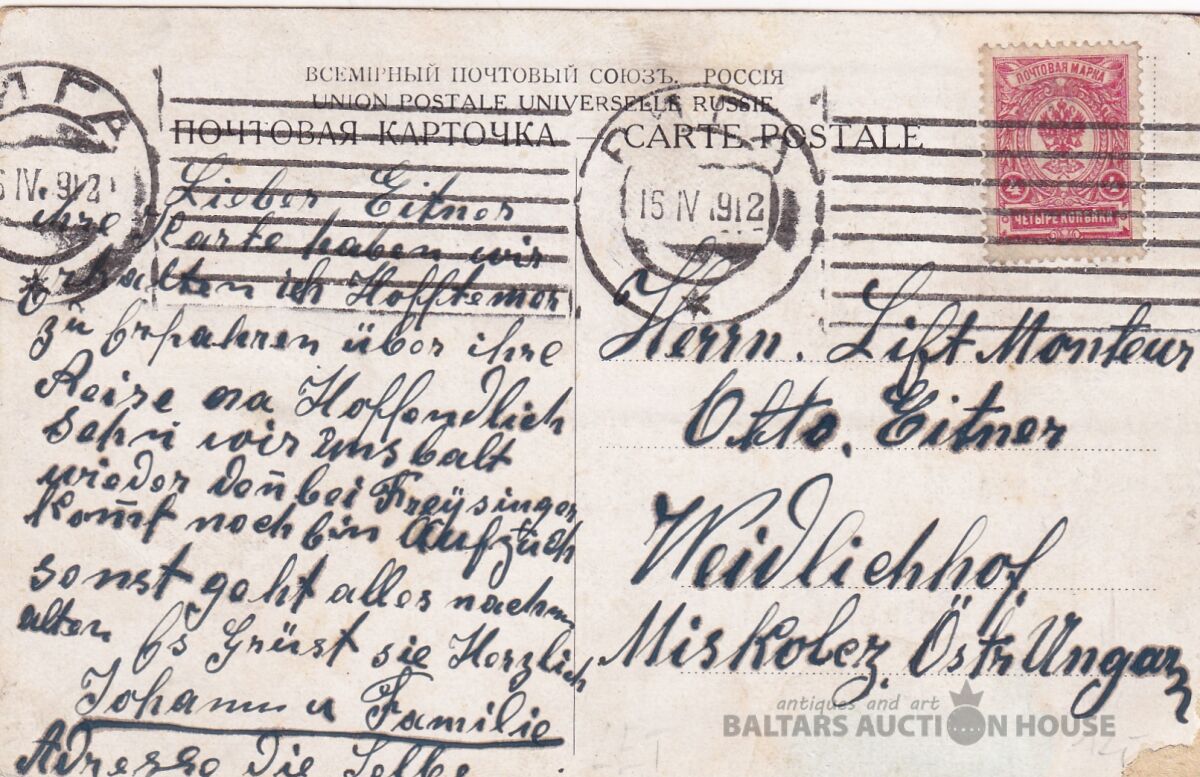 ВСЕМІРНЫЙ ПОЧТОВЫЙ СОЮЗЪ. РОССІЯ
UNION POSTALE UNIVERSELLE RUSSIE.
ПОЧТОВАЯ КАРТОЧКА — CARTE POSTALE
РИГА
16 IV 1912
РИГА
16 IV 1912
ПОЧТОВАЯ МАРКА
4 4
ЧЕТЫРЕ КОПѢЙКИ
Lieber Eitner
ihre Karte haben wir
erhalten ich
zu Erfahren über ihre
Reise Hoffendlich
sehn wir uns balt
wieder den̄ bei Freÿsinger
kom̄t noch Ein Aufzüch
sonst geht alles nachm
alten Es Grüst sie Herzlich
Johann u Familie
Adresse Die Selbe
Herrn. Lift Monteur
Otto. Eitner
Weidlichhof
Miskolcz. Östr Ungarn
antiques and art
BALTARS AUCTION HOUSE